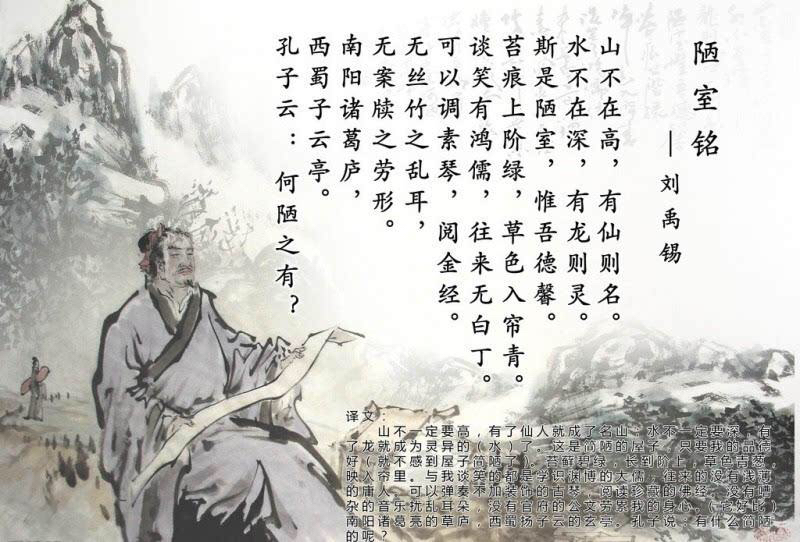 陋室铭
—刘禹锡
山不在高，有仙则名。
水不在深，有龙则灵。
斯是陋室，惟吾德馨。
苔痕上阶绿，草色入帘青。
谈笑有鸿儒，往来无白丁。
可以调素琴，阅金经。
无丝竹之乱耳，
无案牍之劳形。
南阳诸葛庐，
西蜀子云亭。
孔子云：何陋之有？
译文：
山不一定要高，有了仙人就成了名山；水不一定要深，有
了龙就成为灵异的（水）了。这是简陋的屋子，只要我的品德
好（就不感到屋子简陋了）。苔鲜碧绿，长到阶上，草色青葱，
映入帘里。与我谈笑的都是学识渊博的大儒，往来的没有浅薄
的庸人。可以弹奏不加装饰的古琴，阅读珍藏的佛经。没有嘈
杂的音乐扰乱耳朵，没有官府的公文劳累我的身心。（它好比）
南阳诸葛亮的草庐，西蜀扬子云的玄亭。孔子说：有什么简陋
的呢？